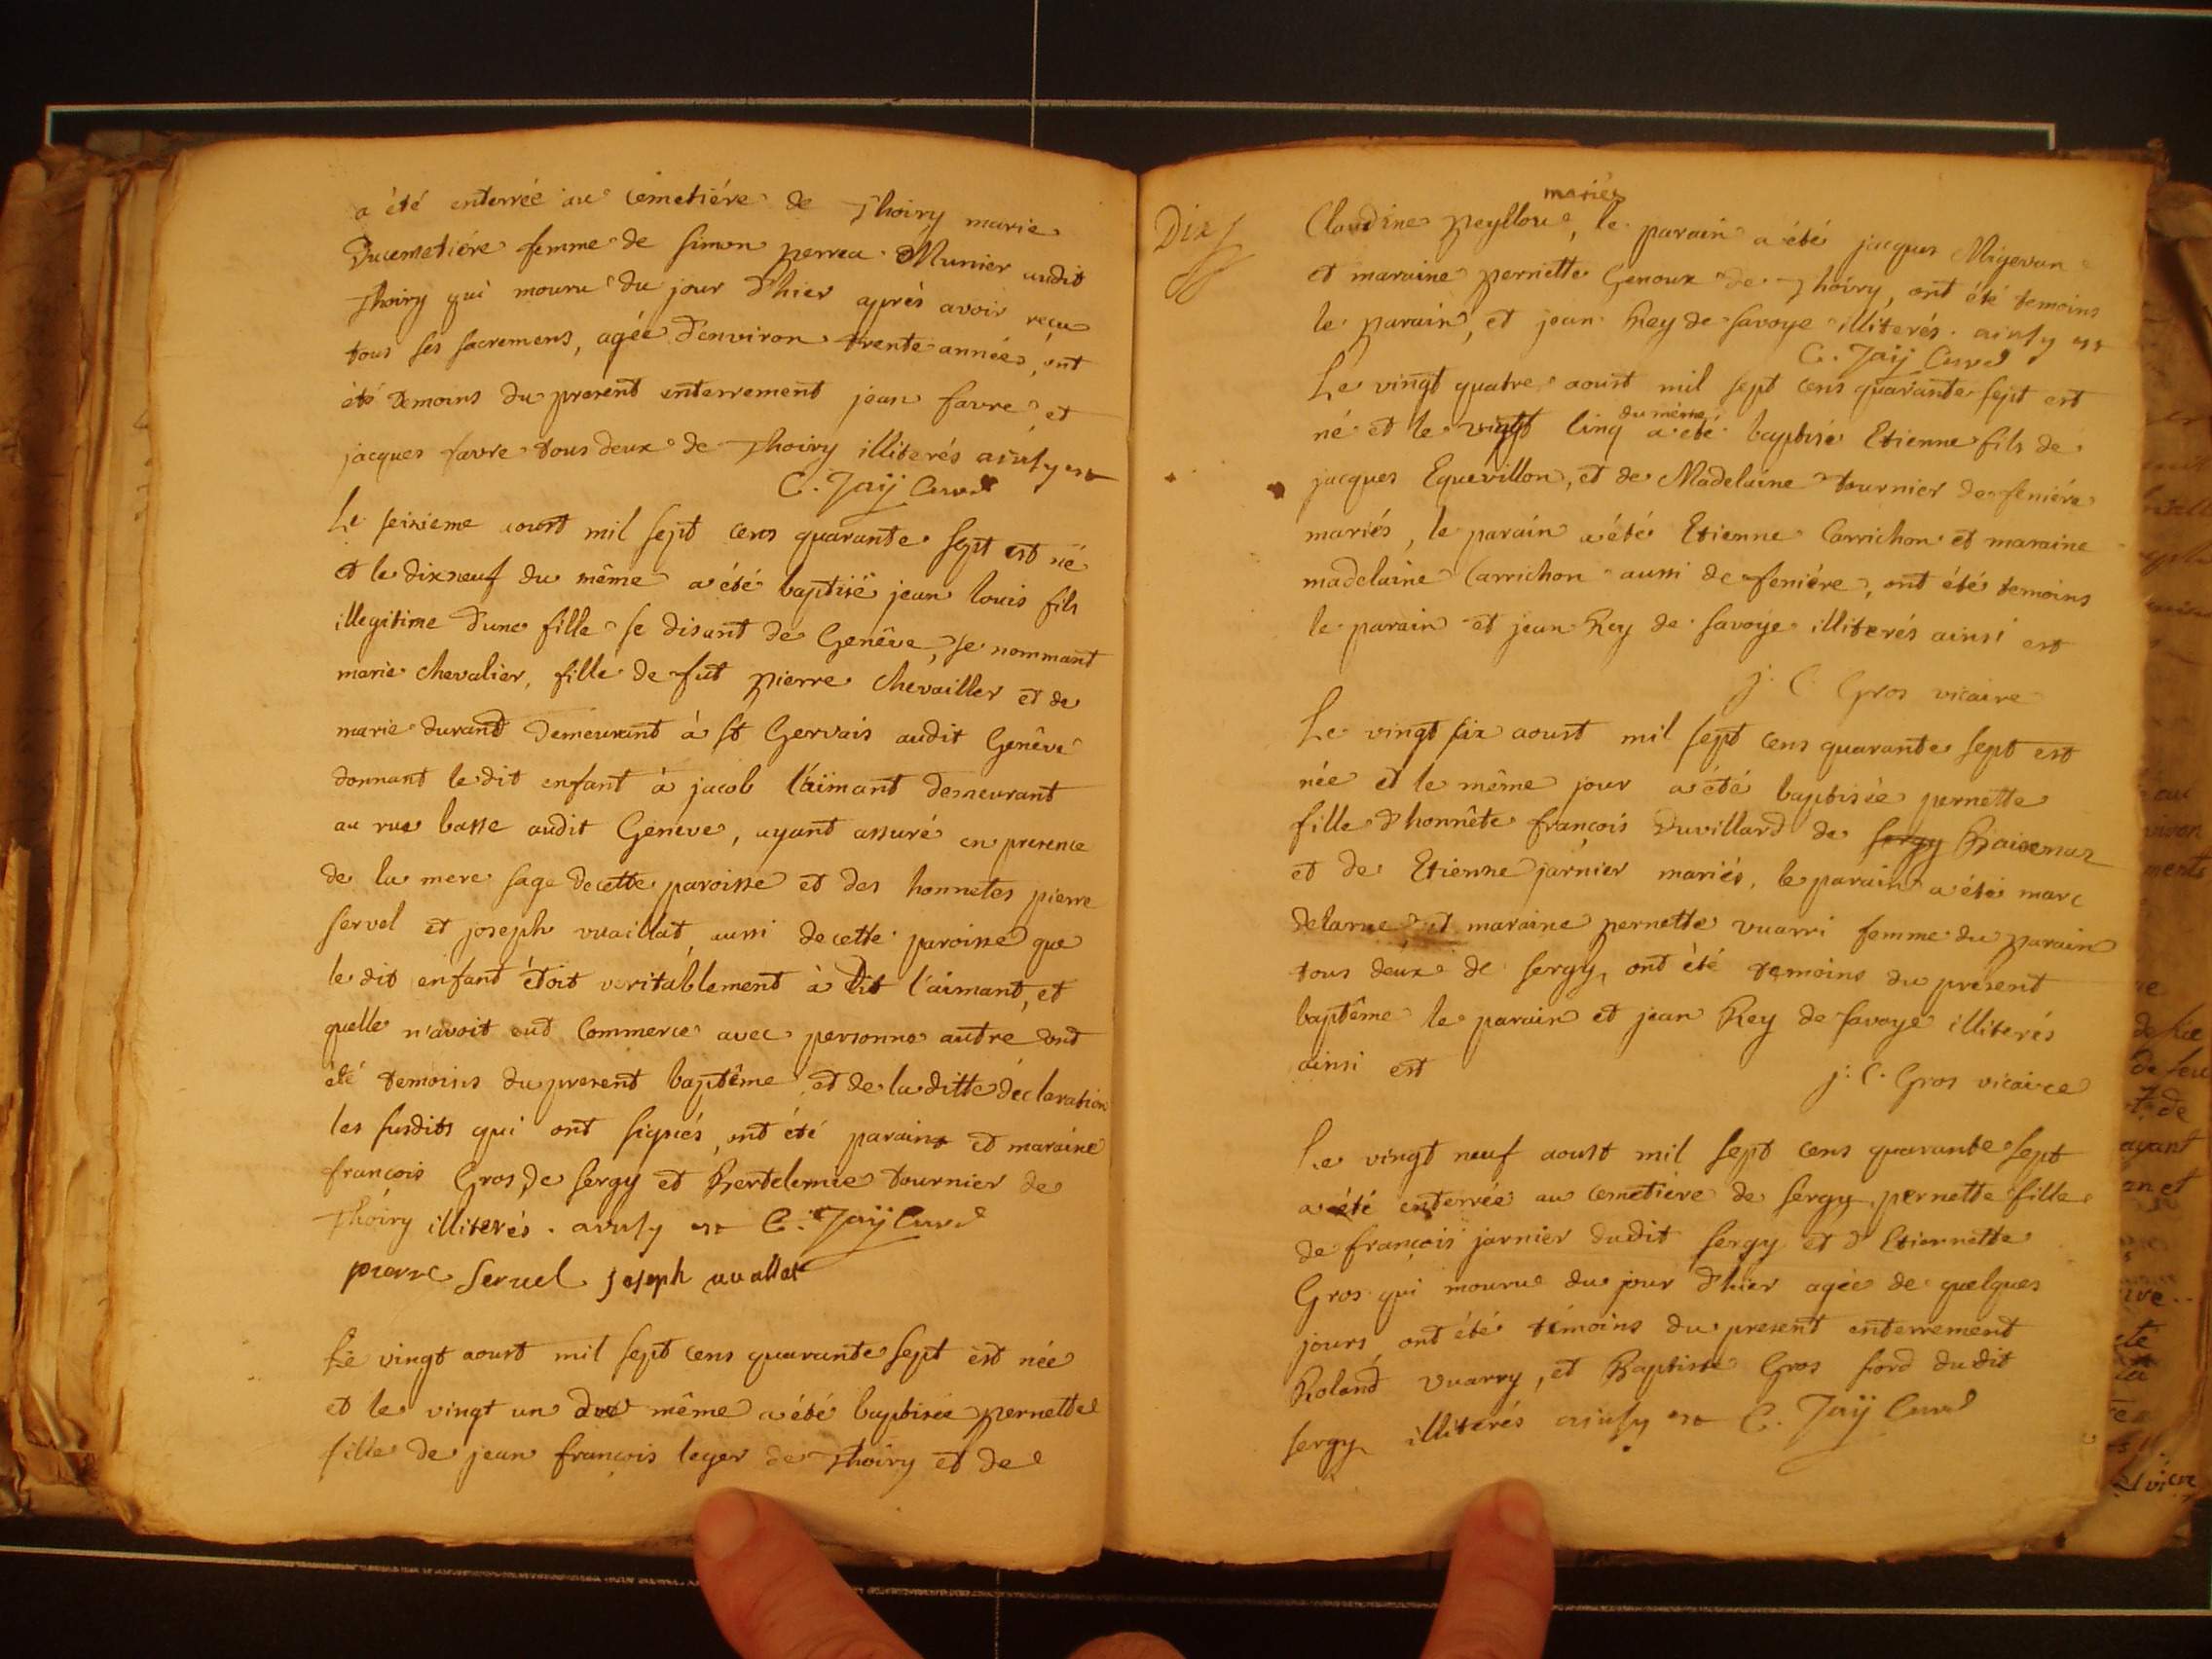 a été enterrée au cemetiére de Thoiry marie
Ducemetiére femme de simon perrea Munier audit
Thoiry qui mouru du jour d'hier aprés avoir reçu
tous ses sacremens, agée d'environ trente années, ont
été temoins du present enterrement jean favre et
jacques favre tous deux de Thoiry illiterés ainsy est
C. Jaÿ Curé
Le seizieme aoust mil sept cens quarante sept est né
et le dixneuf du même a été baptisé jean louis fils
illegitime d'une fille se disant de Genêve, se nommant
marie chevalier, fille de fut pierre chevailler et de
marie durand demeurant à st Gervais audit Genêve
donnant le dit enfant à jacob l'aimant demeurant
au rue basse audit Geneve, ayant assuré en presence
de la mere sage de cette paroisse et des honnetes pierre
servel et joseph vuaillat, aussi de cette paroisse que
le dit enfant êtoit veritablement à dit l'aimant, et
quelle n'avoit eut Commerce avec personne autre ont
été temoins du present baptême et de la ditte déclaration
les susdits qui ont signés, ont été parain et maraine
françois Gros de sergy et Bertelemie tournier de
Thoiry illiterés. ainsy est C. Jaÿ Curé
pierre Seruel Joseph uuallat
Le vingt aoust mil sept cens quarante sept est née
et le vingt un du même a été baptisée pernette
fille de jean françois leger de Thoiry et de
Dix
mariés
Claudine peylloue, le parain a été jacques Migevan
et maraine pernette Genoux de Thoiry, ont été temoins
le parain, et jean Rey de savoye illiterés. ainsy est
C. Jaÿ Curé
Le vingt quatre aoust mil sept cens quarante sept est
né et le vingt cinq du même a été baptisé Etienne fils de
jacques Equevillon, et de Madelaine tournier de feniére
mariés, le parain a été Etienne Carrichon et maraine
madelaine Carrichon aussi de feniére, ont été temoins
le parain et jean Rey de savoye illiterés ainsi est
j. C. Gros vicaire
Le vingt six aoust mil sept cens quarante sept est
née et le même jour a été baptisée pernette
fille d'honnête françois Duvillard de sergy Baisenaz
et de Etienne jarnier mariés, le parain a été marc
delarue et maraine pernette vuarri femme du parain
tous deux de sergy, ont été temoins du present
baptême le parain et jean Rey de savoye illiterés
ainsi est j. C. Gros vicaire
Le vingt neuf aoust mil sept cens quarante sept
a été enterrée au cemetiere de sergy pernette fille
de françois jarnier dudit sergy et d'Etiennette
Gros qui mouru du jour d'hier agée de quelques
jours, ont été témoins du present enterrement
Roland vuarry, et Baptiste Gros ford dudit
sergy illiterés ainsy est C. Jaÿ Curé